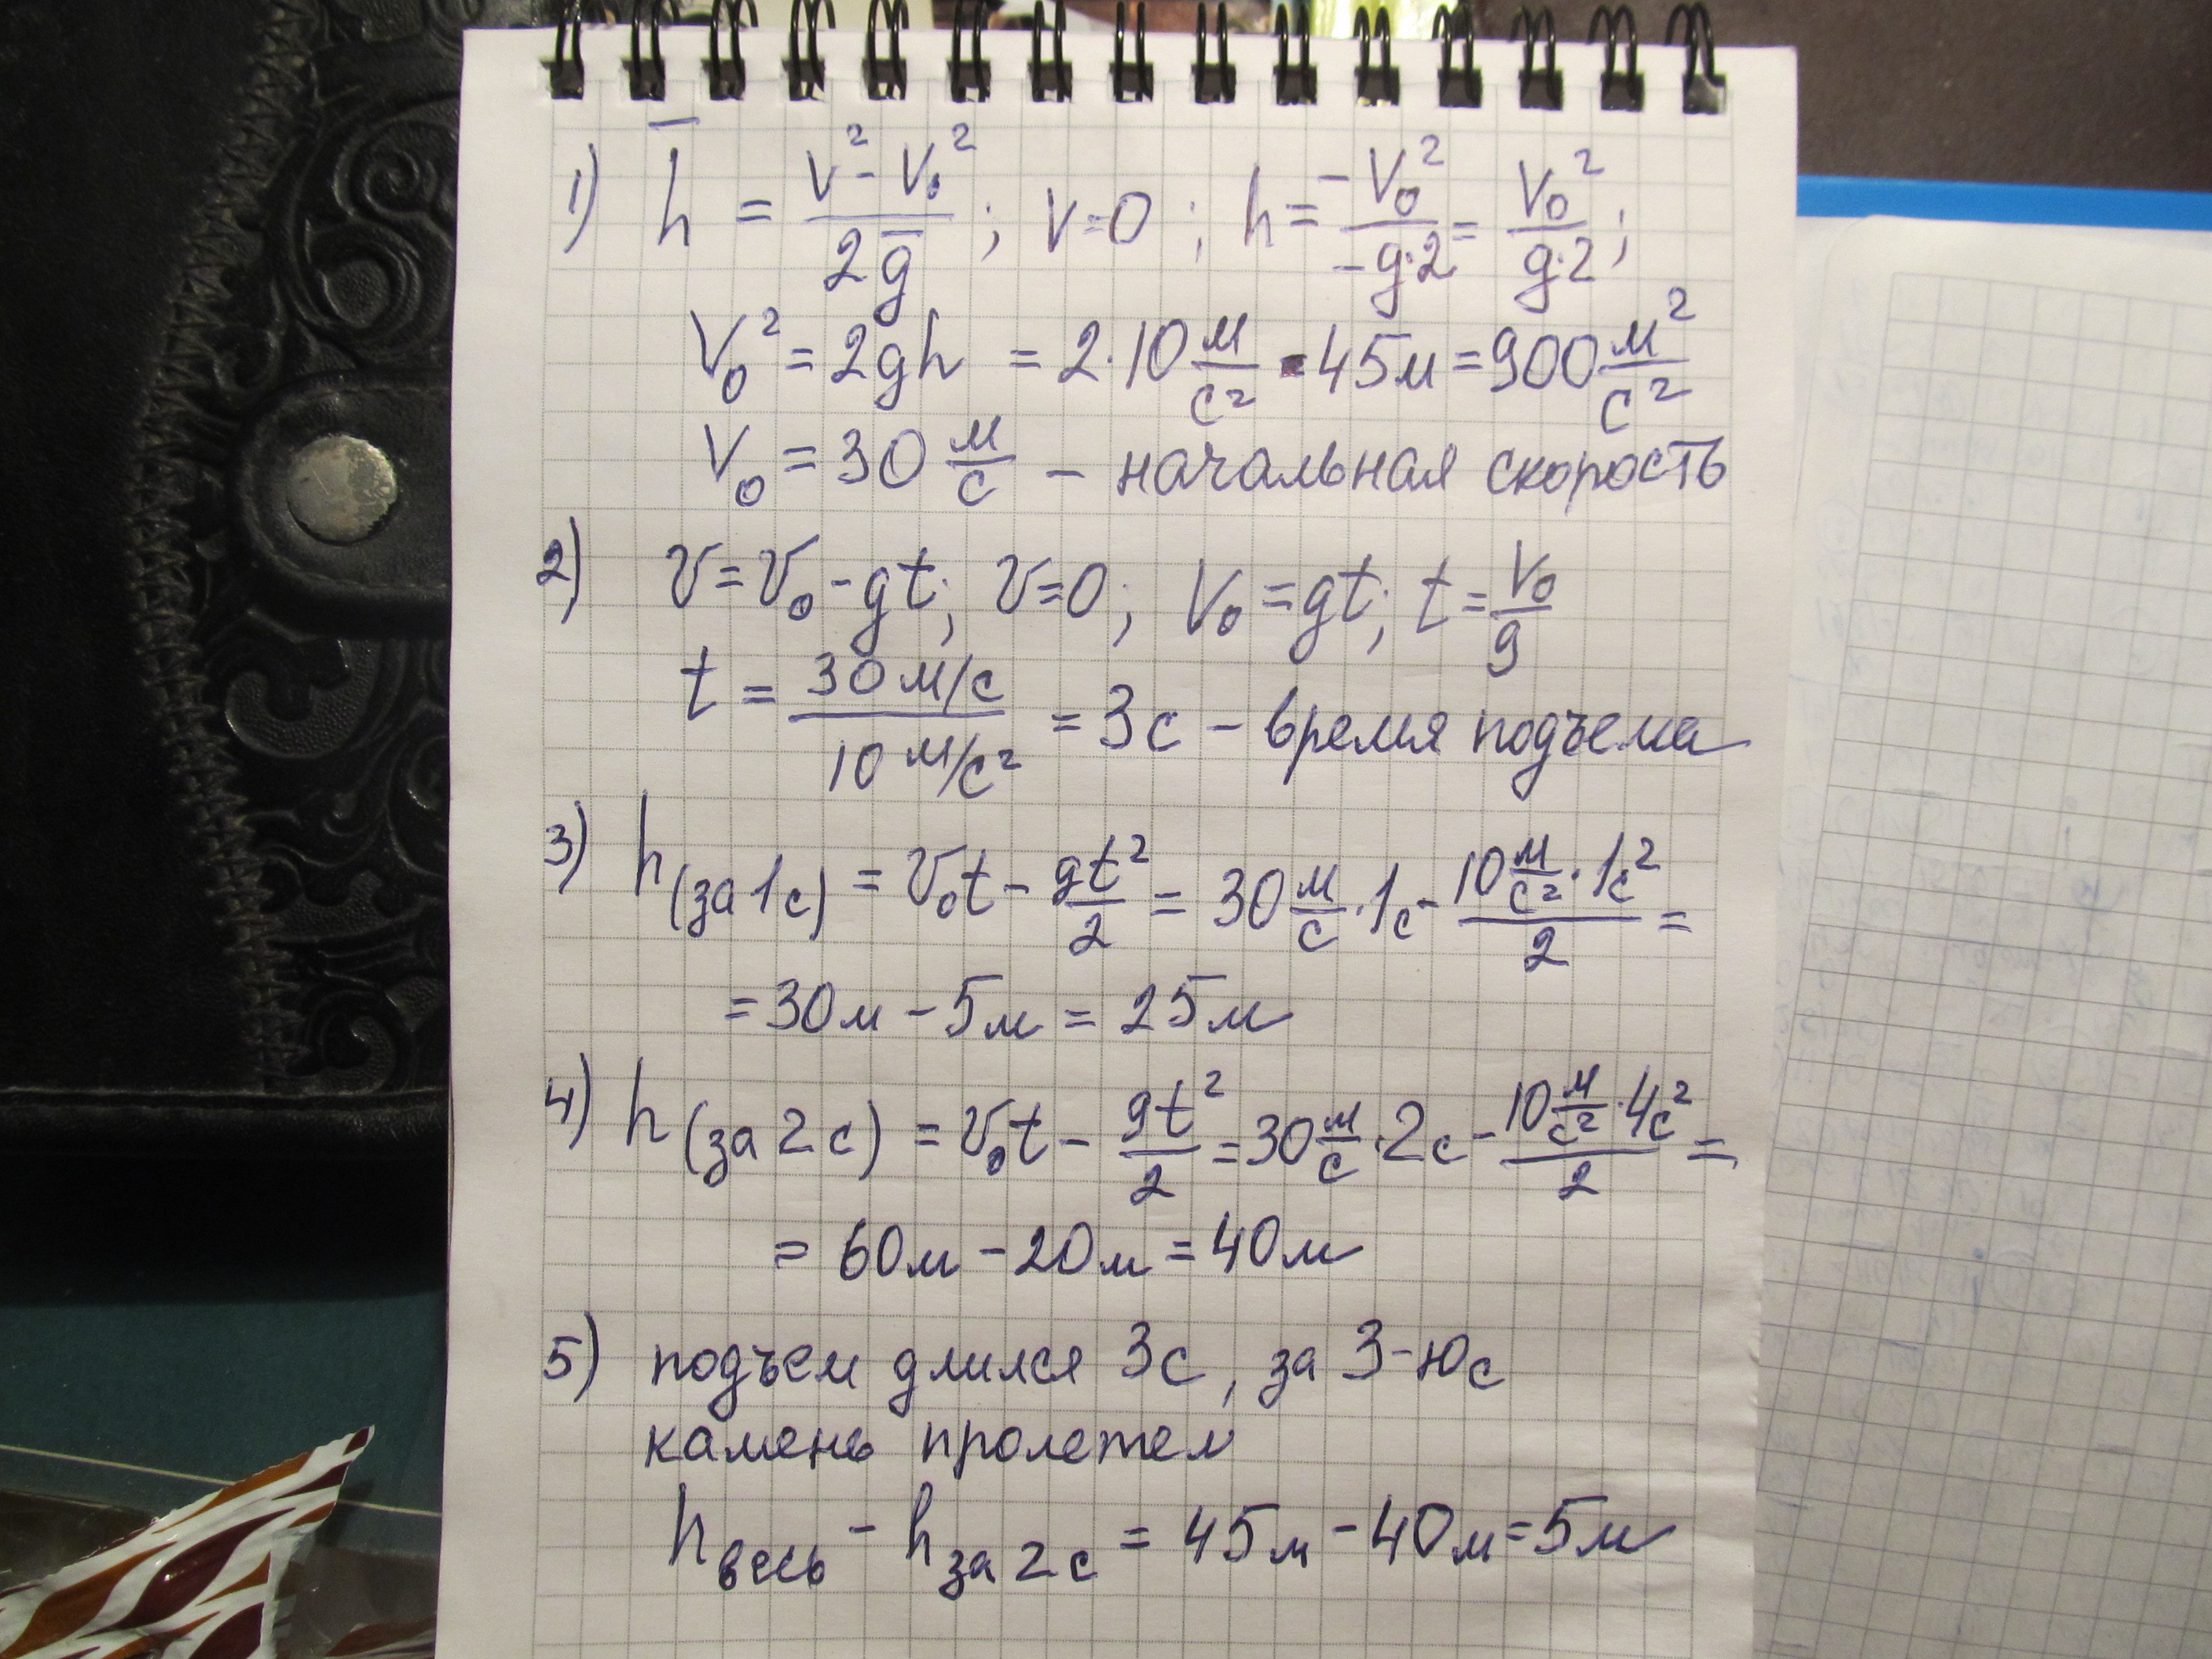 1) h̅ = (v² - v₀²)/(2g̅) ; v=0 ; h = (-v₀²)/(-g·2) = v₀²/(g·2) ;
v₀² = 2gh = 2·10 м/с² · 45м = 900 м²/с²
v₀ = 30 м/с – начальная скорость
2) v = v₀ - gt; v=0; v₀ = gt; t = v₀/g
t = (30 м/с)/(10 м/с²) = 3с – время подъема
3) h(за 1с) = v₀t - gt²/2 = 30 м/с · 1с - (10 м/с² · 1с²)/2 =
= 30м - 5м = 25м
4) h(за 2с) = v₀t - gt²/2 = 30 м/с · 2с - (10 м/с² · 4с²)/2 =
= 60м - 20м = 40м
5) подъем длился 3с, за 3-юс
камень пролетел
hвесь - hза 2с = 45м - 40м = 5м